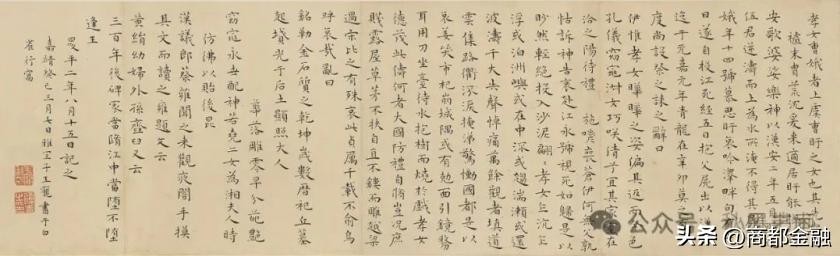 孝女曹娥者上虞曹盱之女也其先
末胄荒沉爰來適居盱能
安歌婆娑樂神以漢安二年五月
伍君逆濤而上為水所淹不得其
娥年十四號慕思盱哀吟澤畔旬有
日遂自投江死經五日抱父屍出以漢
迄于元嘉元年青龍在辛卯莫
度尚設祭之誄之辭曰
伊惟孝女曄曄之姿偏其返而令色
孔儀窈窕淑女巧咲倩兮宜其家室在
洽之陽待禮 施嗟喪蒼伊何無父孰
怙訴神告哀赴江永號視死如歸是以
眇然輕絕投入沙泥翩翩孝女乍沉乍
浮或泊洲嶼或在中流或趨湍瀨或還
波濤千夫失聲悼痛萬餘觀者填道
雲集路衢泣淚掩涕驚慟國都是以
哀姜哭市杞崩城隅或有剋面引鏡剺
耳用刀坐臺待水抱樹而燒於戲孝女
德茂此儔何者大國防禮自脩豈況庶
賤露屋草茅不扶自直不鏤而雕越梁
過宋比之有殊哀此貞厲千載不渝嗚
呼哀哉亂曰
銘勒金石質之乾坤歲數曆祀丘墓
起墳光于后土顯照天人
華落雕零早分葩艷
窈窕永世配神若堯二女為湘夫人時
仿佛以貽後昆
漢議郎蔡雍聞之來觀夜闇手摸
其文而讀之雍題文云
黃絹幼婦外孫齏臼又云
三百年後碑冢當墮江中當墮不墮
逢王
昇平二年八月十五日記之
嘉靖癸巳三月七日雅宜子王寵書于白
雀行窩
公众号
头条 @商都金融